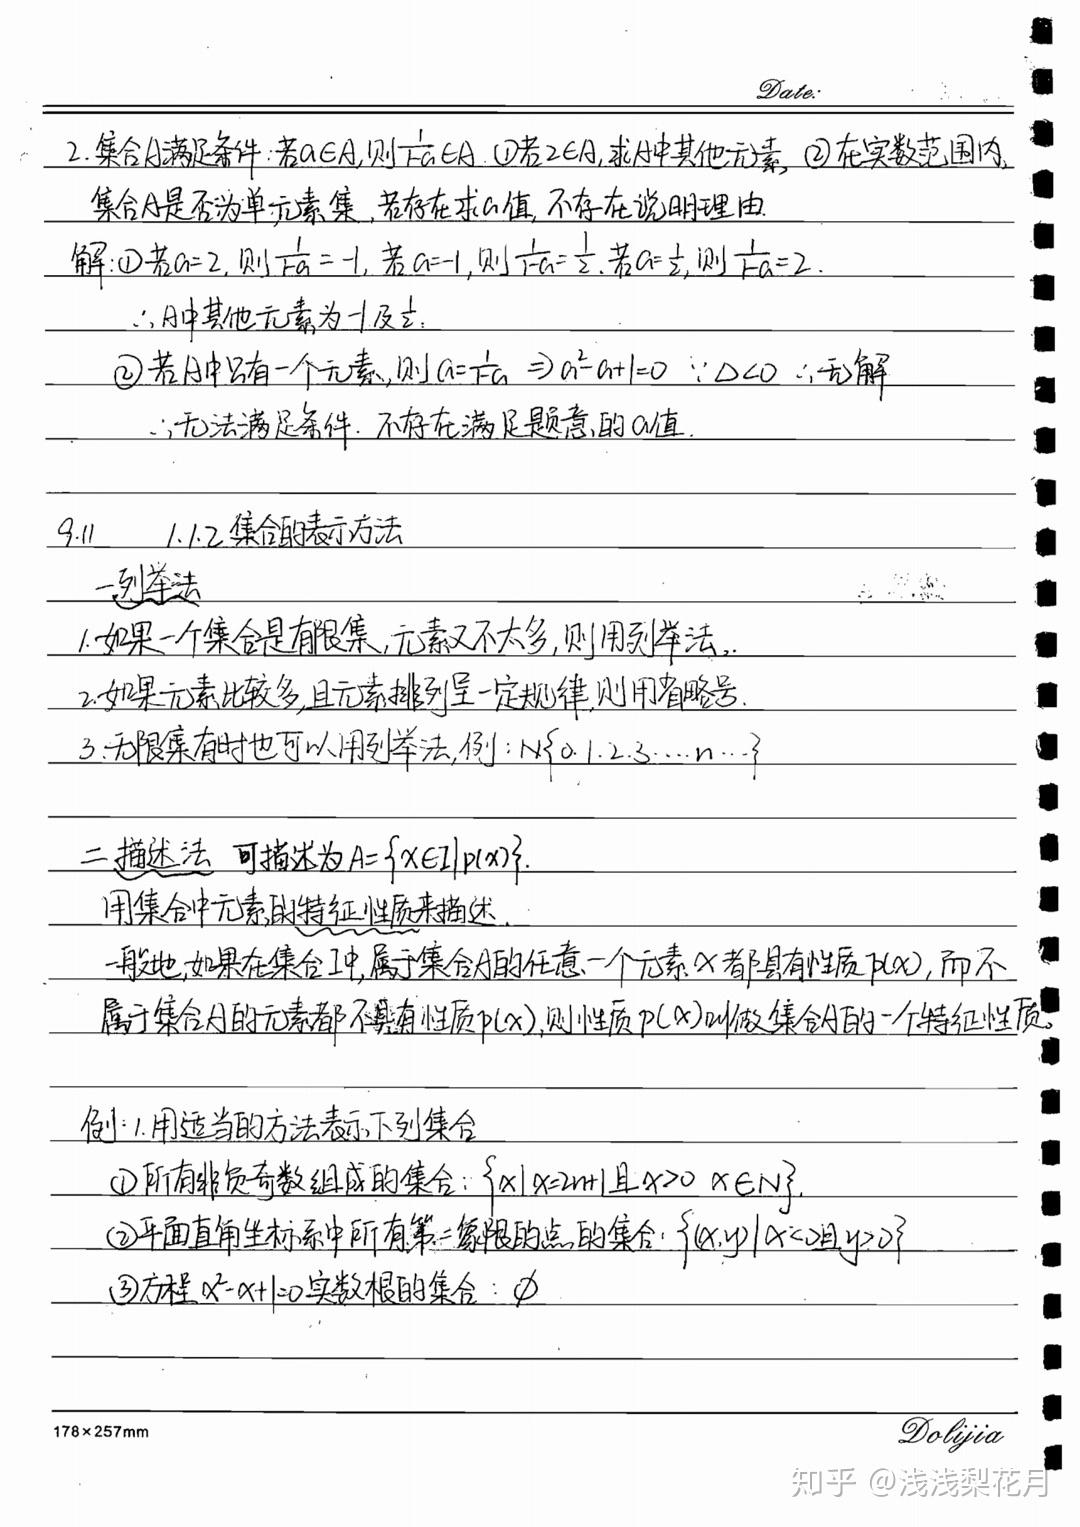 Date:
2.集合A满足条件:若a∈A,则1/(1-a)∈A.①若2∈A,求A中其他元素.②在实数范围内,
集合A是否为单元素集,若存在求a值,不存在说明理由.
解:①若a=2,则1/(1-a)=-1,若a=-1,则1/(1-a)=1/2.若a=1/2,则1/(1-a)=2.
∴A中其他元素为-1及1/2.
②若A中只有一个元素,则a=1/(1-a)⇒a²-a+1=0 ∵△<0 ∴无解
∴无法满足条件.不存在满足题意的a值.
9.11 1.1.2集合的表示方法
一列举法
1.如果一个集合是有限集,元素又不太多,则用列举法.
2.如果元素比较多,且元素排列呈一定规律,则用省略号.
3.无限集有时也可以用列举法,例:N{0.1.2.3····n···}
二描述法 可描述为A={x∈I|p(x)}.
用集合中元素的特征性质来描述.
一般地,如果在集合I中,属于集合A的任意一个元素x都具有性质p(x),而不
属于集合A的元素都不具有性质p(x),则性质p(x)叫做集合A的一个特征性质。
例:1.用适当的方法表示下列集合
①所有非负奇数组成的集合:{x|x=2n+1且x>0 x∈N}.
②平面直角坐标系中所有第二象限的点的集合:{(x,y)|x<0且y>0}
③方程x²-x+1=0实数根的集合:∅
178×257mm
Dolijia
知乎 @浅浅梨花月